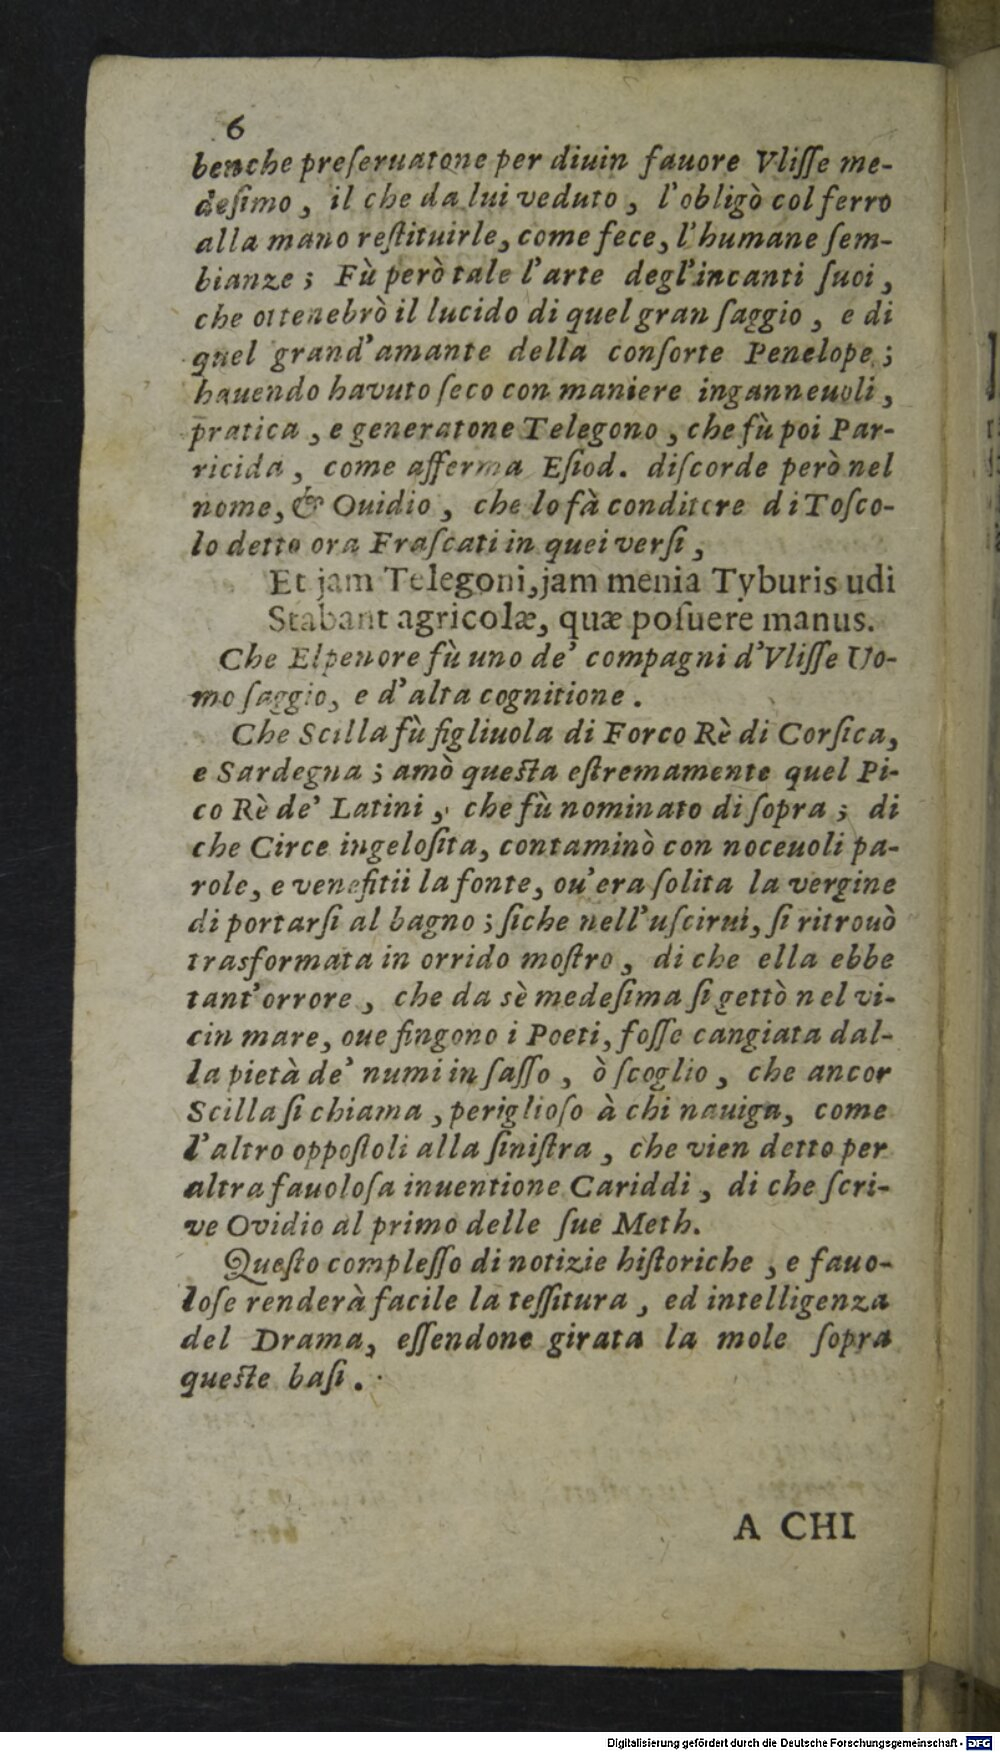 6
benche preſeruatone per diuin fauore Vliſſe me-
deſimo, il che da lui veduto, l'obligò col ferro
alla mano reſtituirle, come fece, l'humane ſem-
bianze; Fù però tale l'arte degl'incanti ſuoi,
che ottenebrò il lucido di quel gran ſaggio, e di
quel grand'amante della conſorte Penelope;
hauendo havuto ſeco con maniere inganneuoli,
pratica, e generatone Telegono, che fù poi Par-
ricida, come afferma Eſiod. diſcorde però nel
nome, & Ouidio, che lo fà conditore di Toſco-
lo detto ora Fraſcati in quei verſi,
Et jam Telegoni, jam menia Tyburis udi
Stabant agricolæ, quæ poſuere manus.
Che Elpenore fù uno de' compagni d'Vliſſe Uo-
mo ſaggio, e d'alta cognitione.
Che Scilla fù figliuola di Forco Rè di Corſica,
e Sardegna; amò queſta eſtremamente quel Pi-
co Rè de' Latini, che fù nominato di ſopra; di
che Circe ingeloſita, contaminò con noceuoli pa-
role, e venefitii la fonte, ou'era ſolita la vergine
di portarſi al bagno; ſiche nell'uſcirui, ſi ritrouò
trasformata in orrido moſtro, di che ella ebbe
tant'orrore, che da sè medeſima ſi gettò nel vi-
cin mare, oue fingono i Poeti, foſſe cangiata dal-
la pietà de' numi in ſaſſo, ò ſcoglio, che ancor
Scilla ſi chiama, periglioſo à chi nauiga, come
l'altro oppoſtoli alla ſiniſtra, che vien detto per
altra fauoloſa inuentione Cariddi, di che ſcri-
ve Ovidio al primo delle ſue Meth.
Queſto compleſſo di notizie hiſtoriche, e fauo-
loſe renderà facile la teſſitura, ed intelligenza
del Drama, eſſendone girata la mole ſopra
queſte baſi.
A CHI
Digitalisierung gefördert durch die Deutsche Forschungsgemeinschaft - DFG